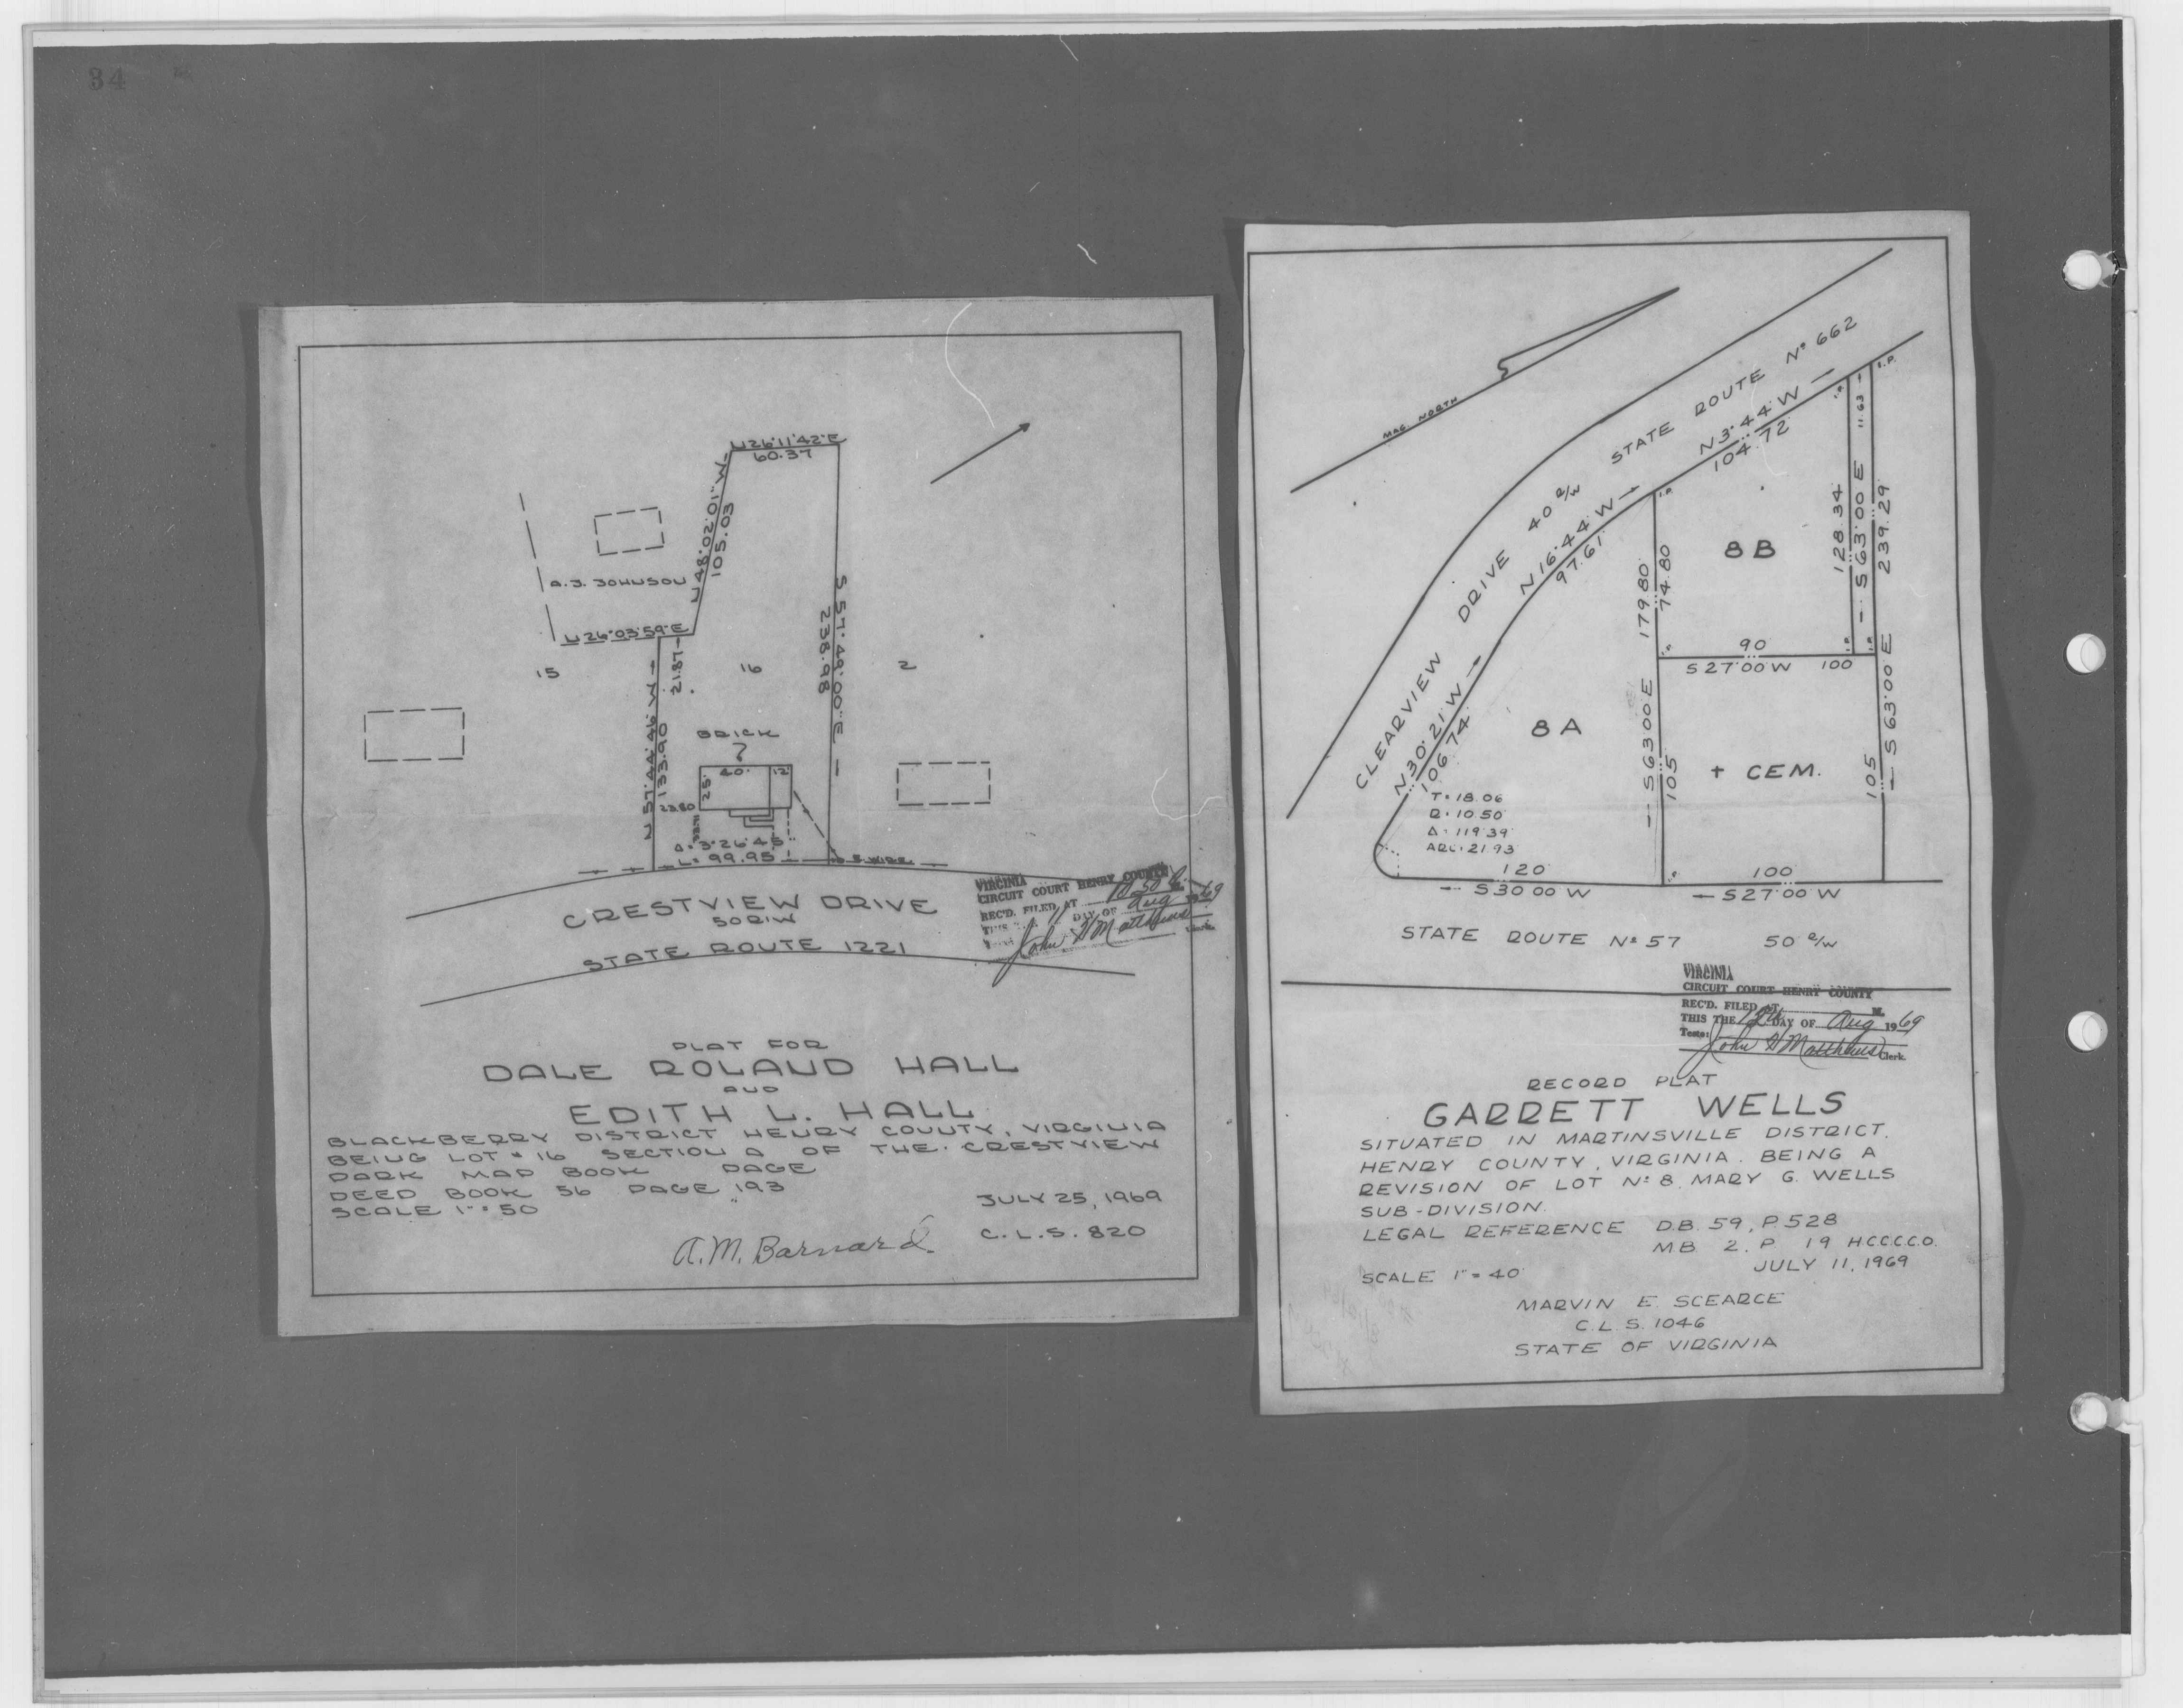 34
N 26°11'42" E
60.37
N 48°02'01" W
105.03
A. J. JOHNSON
N 26°03'59" E
21.87
15
16
2
S 57°49'00" E
238.98
N 57°44'46" W
133.90
BRICK
40'
12'
25'
23.80
Δ = 3°26'45"
L = 99.95
CRESTVIEW DRIVE
50 R/W
STATE ROUTE 1221
VIRGINIA
CIRCUIT COURT HENRY COUNTY
REC'D. FILED AT 10:50 A. M.
THIS 11 DAY OF Aug 1969
John H Matthews Clerk.
PLAT FOR
DALE ROLAND HALL
AND
EDITH L. HALL
BLACKBERRY DISTRICT HENRY COUNTY, VIRGINIA
BEING LOT # 16 SECTION A OF THE CRESTVIEW
PARK MAP BOOK PAGE
DEED BOOK 56 PAGE 193
SCALE 1" = 50
JULY 25, 1969
C. L. S. 820
A. M. Barnard
MAG NORTH
CLEARVIEW DRIVE 40 R/W STATE ROUTE Nº 662
N 3°44' W
104.72
N 16°44' W
97.61'
N 30°21' W
106.74'
I.P.
I.P.
I.P.
11.63
128.34
S 63°00 E
239.29
8 B
179.80'
74.80
90
S 27°00 W 100
I.P.
I.P.
I.P.
8 A
S 63 00 E
105
+ CEM.
105
S 63°00 E
T = 18.06
R = 10.50
Δ = 119°39'
ARC = 21.93
120
S 30 00 W
100
S 27°00 W
STATE ROUTE Nº 57 50 R/W
VIRGINIA
CIRCUIT COURT HENRY COUNTY
REC'D. FILED AT M.
THIS THE 12th DAY OF Aug 1969
Teste: John H Matthews Clerk.
RECORD PLAT
GARRETT WELLS
SITUATED IN MARTINSVILLE DISTRICT,
HENRY COUNTY, VIRGINIA. BEING A
REVISION OF LOT Nº 8, MARY G. WELLS
SUB-DIVISION.
LEGAL REFERENCE D.B. 59, P. 528
M.B. 2, P. 19 H.C.C.C.O.
JULY 11, 1969
SCALE 1" = 40'
MARVIN E. SCEARCE
C. L. S. 1046
STATE OF VIRGINIA